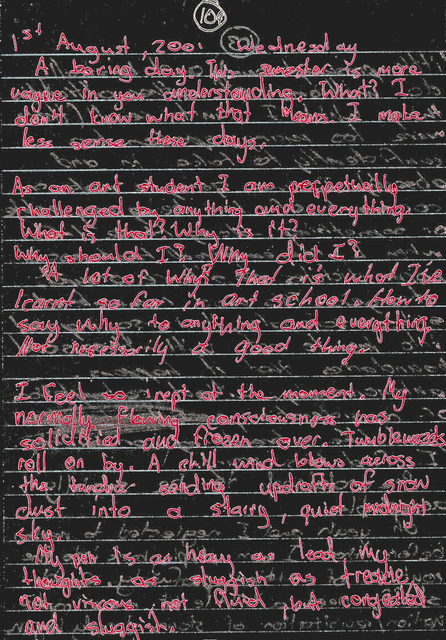 10
1st August, 2001 Wednesday
A boring day. This semester is more
vague in your understanding. What? I
don't know what that means. I make
less sense these days.
As an art student I am perpetually
challenged by anything and everything.
What is that? Why is it?
Why should I? Why did I?
A lot of Why? That is what I've
learnt so far in art school. How to
say why to anything and everything.
Not necessarily a good thing.
I feel so inept at the moment. My
normally flowing consciousness has
solidified and frozen over. Tumbleweeds
roll on by. A chill wind blows across
the tundra sending updrafts of snow
dust into a starry, quiet midnight
sky.
My pen is as heavy as lead. My
thoughts as sluggish as treacle,
not viscous, not fluid, but congealed
and sluggish.